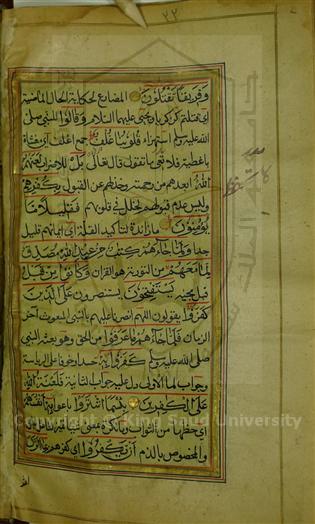 ٢٢
وفريقا تقتلون المضارع لحكاية الحال الماضية
اى قتلتم كزكريا ويحيى عليهما السلام وقالوا للنبى صلى
الله عليه وسلم استهزاء قلوبنا غلف جمع اغلف اى مغشاة
باغطية فلا تعى ما تقول قال تعالى بل للاضراب لعنهم
الله ابعدهم من رحمته وخذلهم عن القبول بكفرهم
وليس عدم قبولهم لخلل فى قلوبهم فقليلا ما
يؤمنون ما زائدة لتاكيد القلة اى ايمانهم قليل
جدا ولما جاءهم كتب من عند الله مصدق
لما معهم من التورية هو القران وكانوا من قبل
قبل مجيئه يستفتحون يستنصرون على الذين
كفروا يقولون اللهم انصرنا عليهم بالنبى المبعوث اخر
الزمان فلما جاءهم ما عرفوا من الحق وهو بعثة النبى
صلى الله عليه وسلم كفروا به حسدا وخوفا على الرياسة
وجواب لما الاولى دل عليه جواب الثانية فلعنة الله
على الكفرين بئسما اشتروا باعوا به انفسهم
اى حظها من الثواب وما نكرة بمعنى شيئا
والمخصوص بالذم ان يكفروا اى كفرهم بما انزل
Copyright © King Saud University